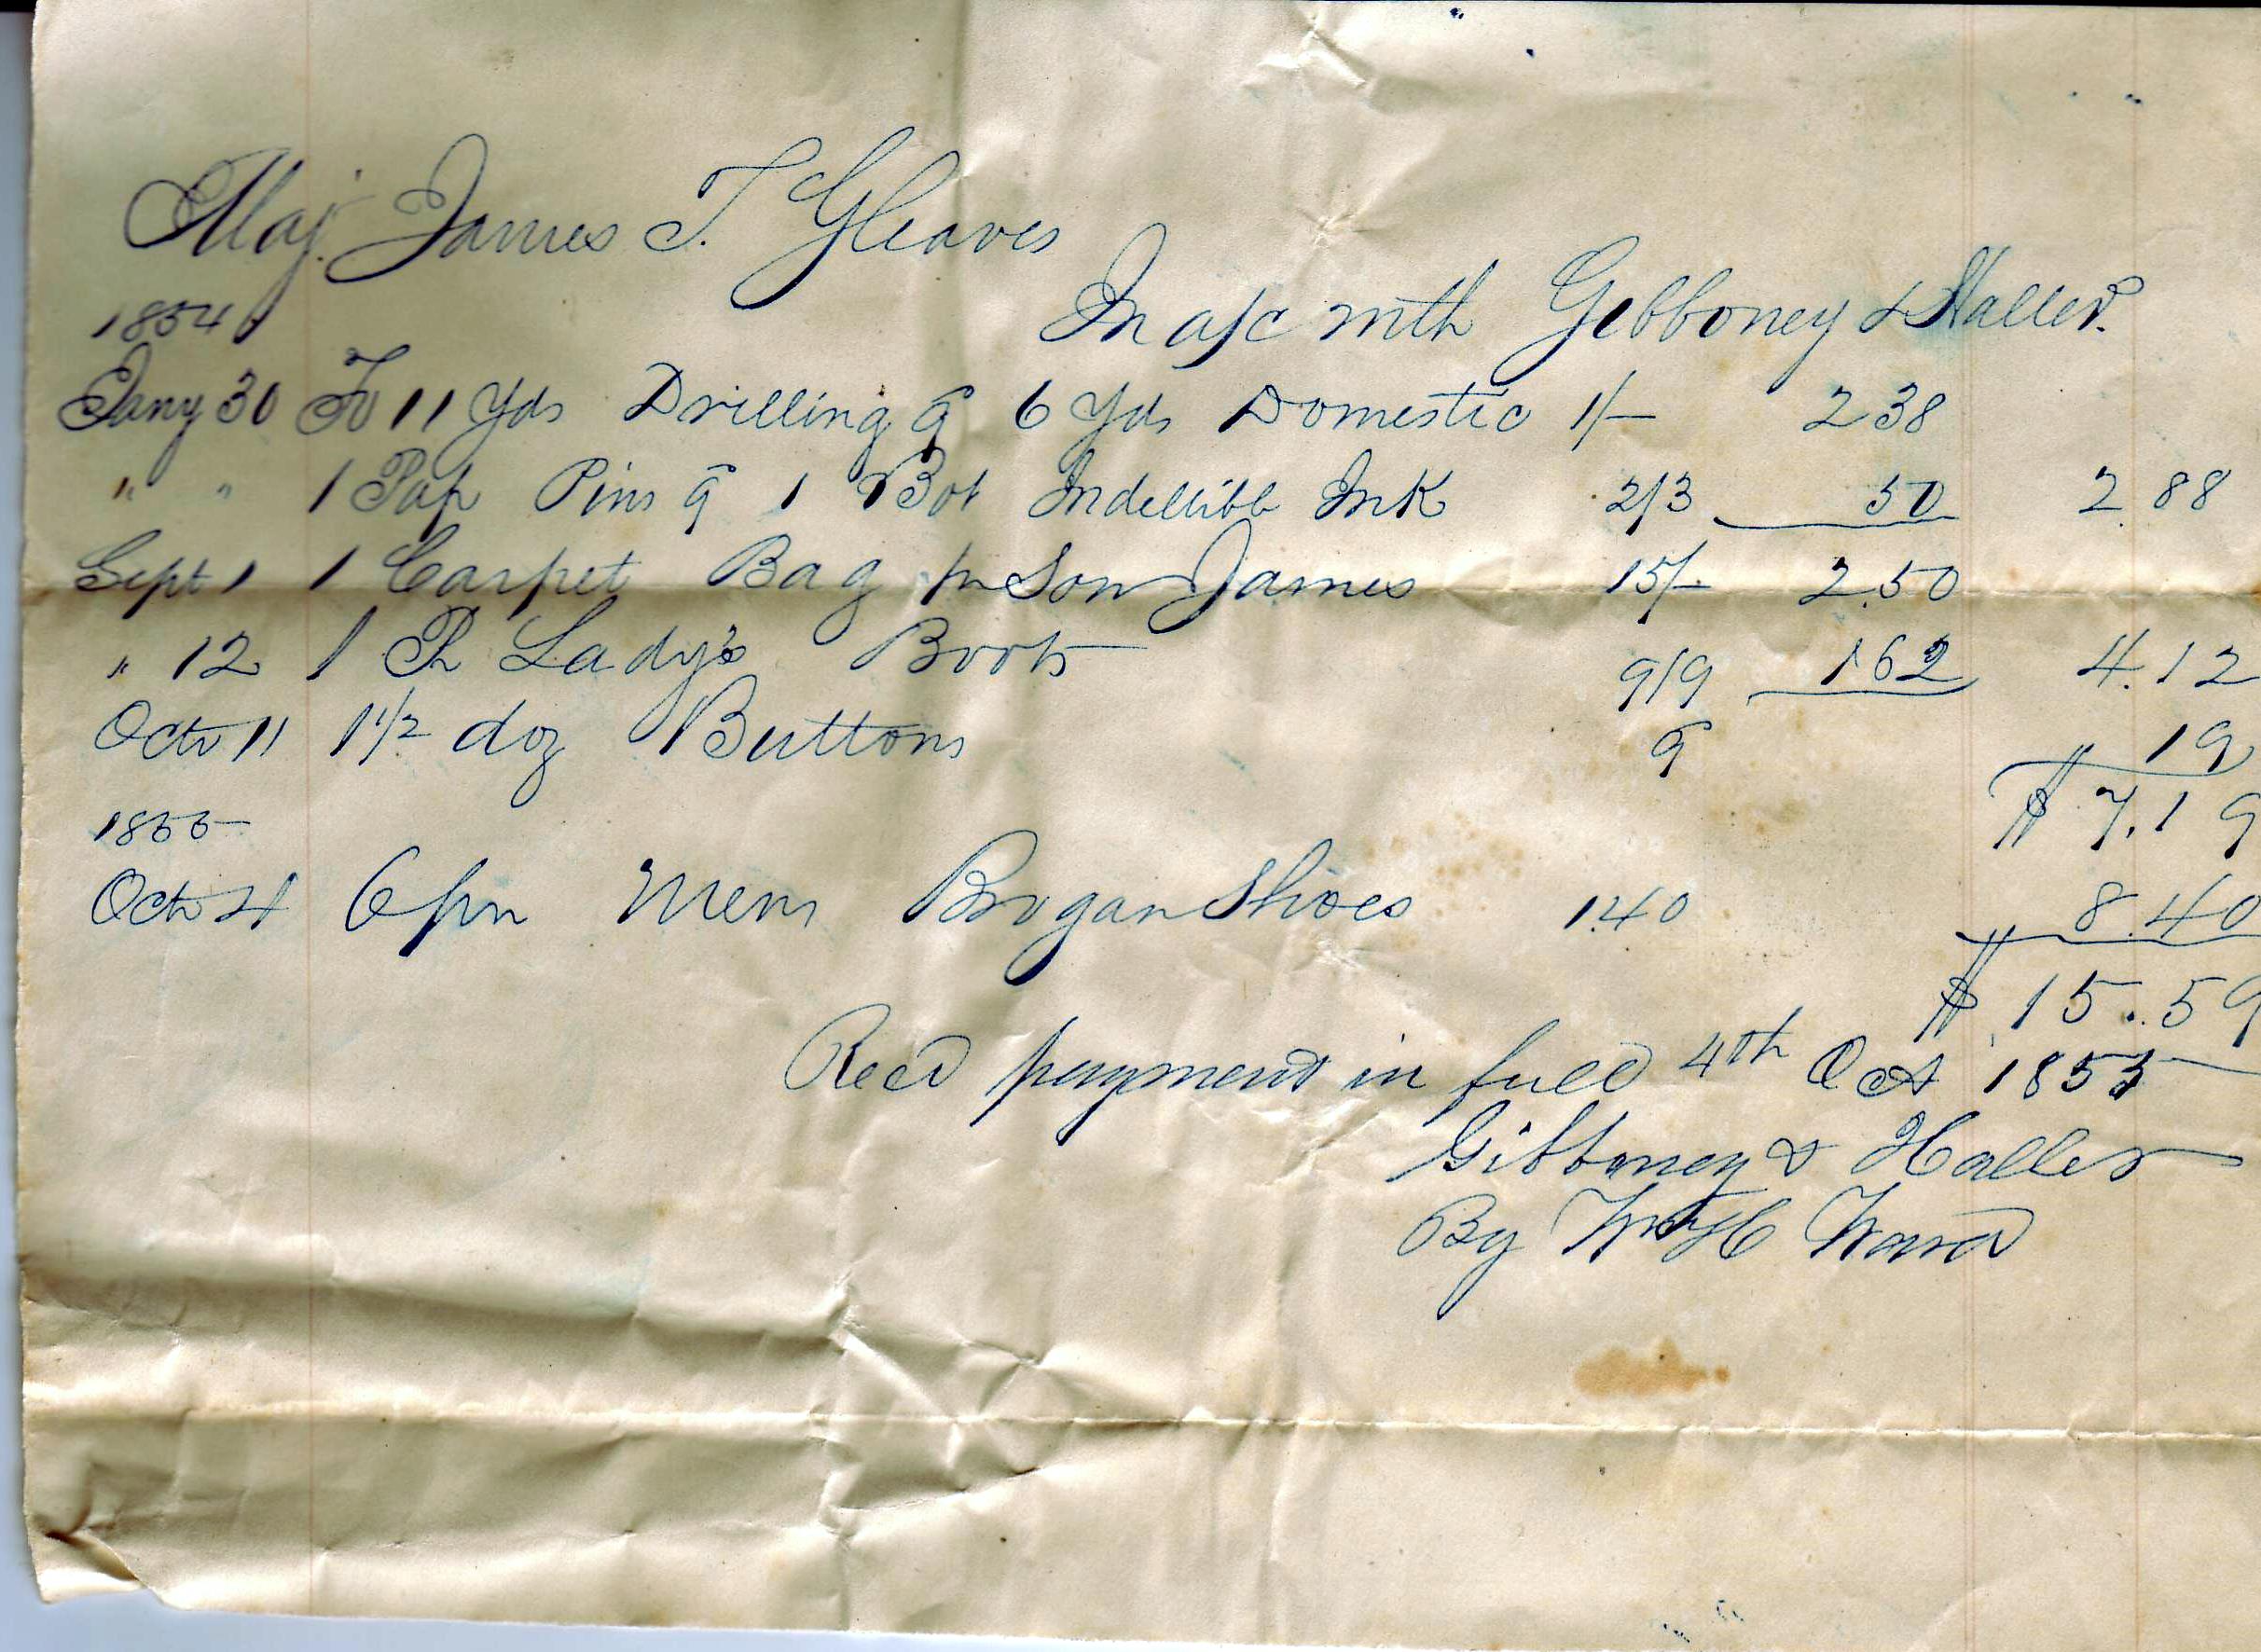 Maj. James T. Gleaves
In a/c with Gibboney & Haller.
1854
Jany 30 To 11 Yds Drilling 9 6 Yds Domestic 1/- 2 38
" " 1 Pap Pins 9 1 Bot Indellible Ink 2/3 50 2.88
Sept 1 1 Carpet Bag pr Son James 15/- 2.50
" 12 1 Pr Lady's Boots 9/9 1 62 4.12
Octo 11 1 1/2 doz Buttons 9 19
$ 7.19
1855
Octo 4 6 prs Mens Brogan Shoes 1.40 8.40
$ 15.59
Recd payment in full 4th Oct 1855
Gibboney & Haller
By Wm H Ward